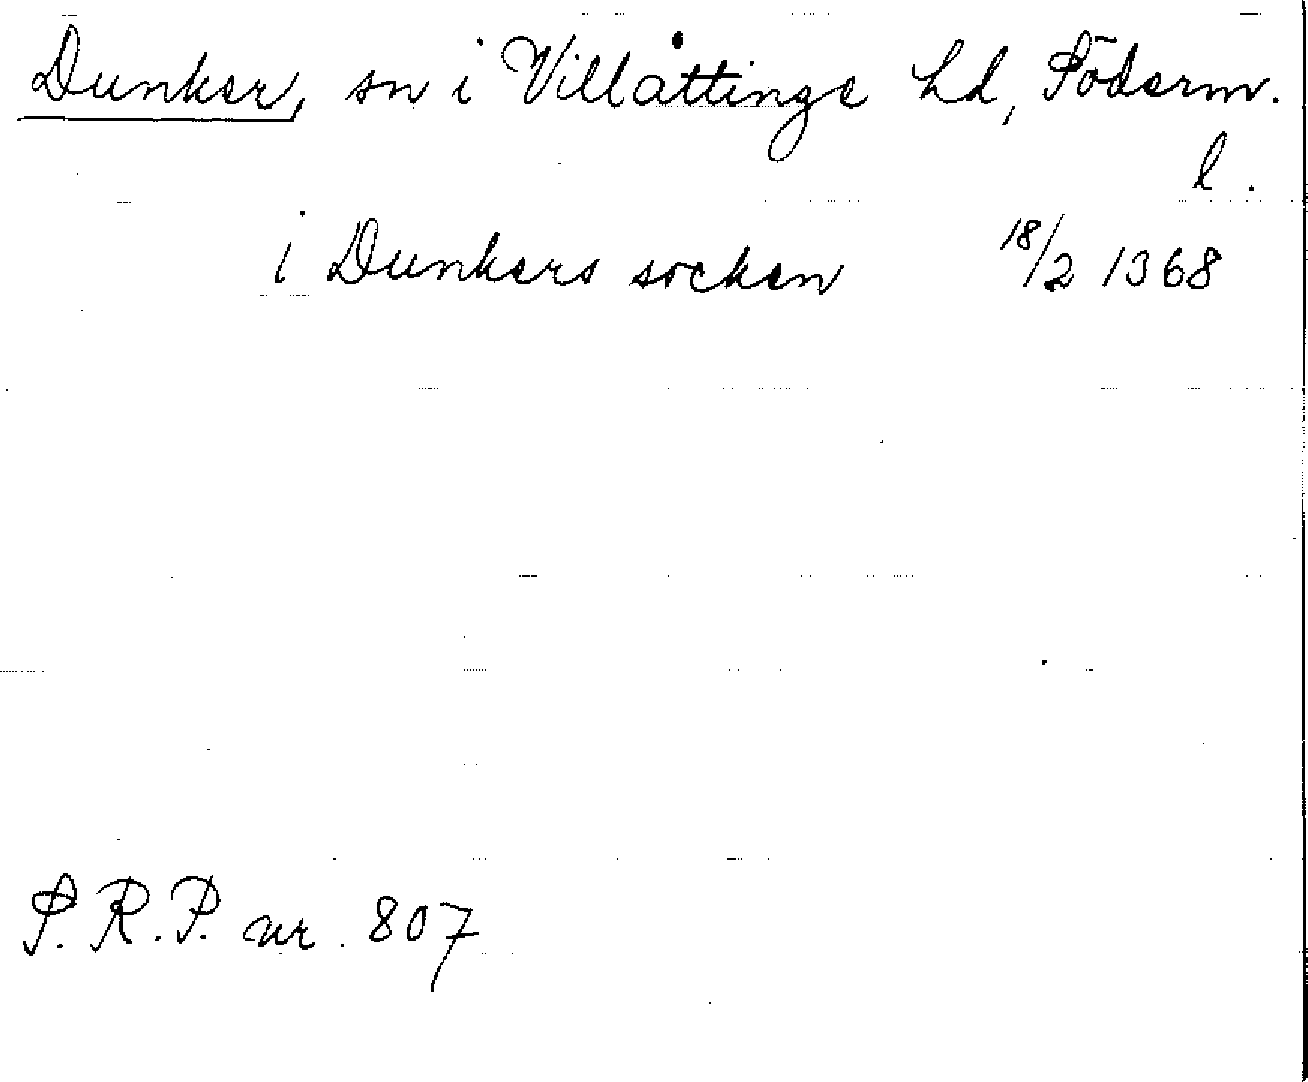 Dunker, sn i Villåttinge hd, Söderm.
l.
i Dunkers socken 18/2 1368
S.R.P. nr. 807